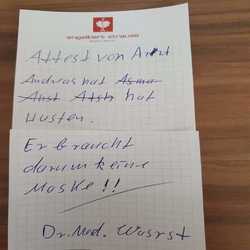 engelbert strauss
Attest von Arzt
Andreas hat Asma
Ahst Atsh hat
Husten.
Er braucht
darum keine
Maske!!
Dr. Med. Wurst